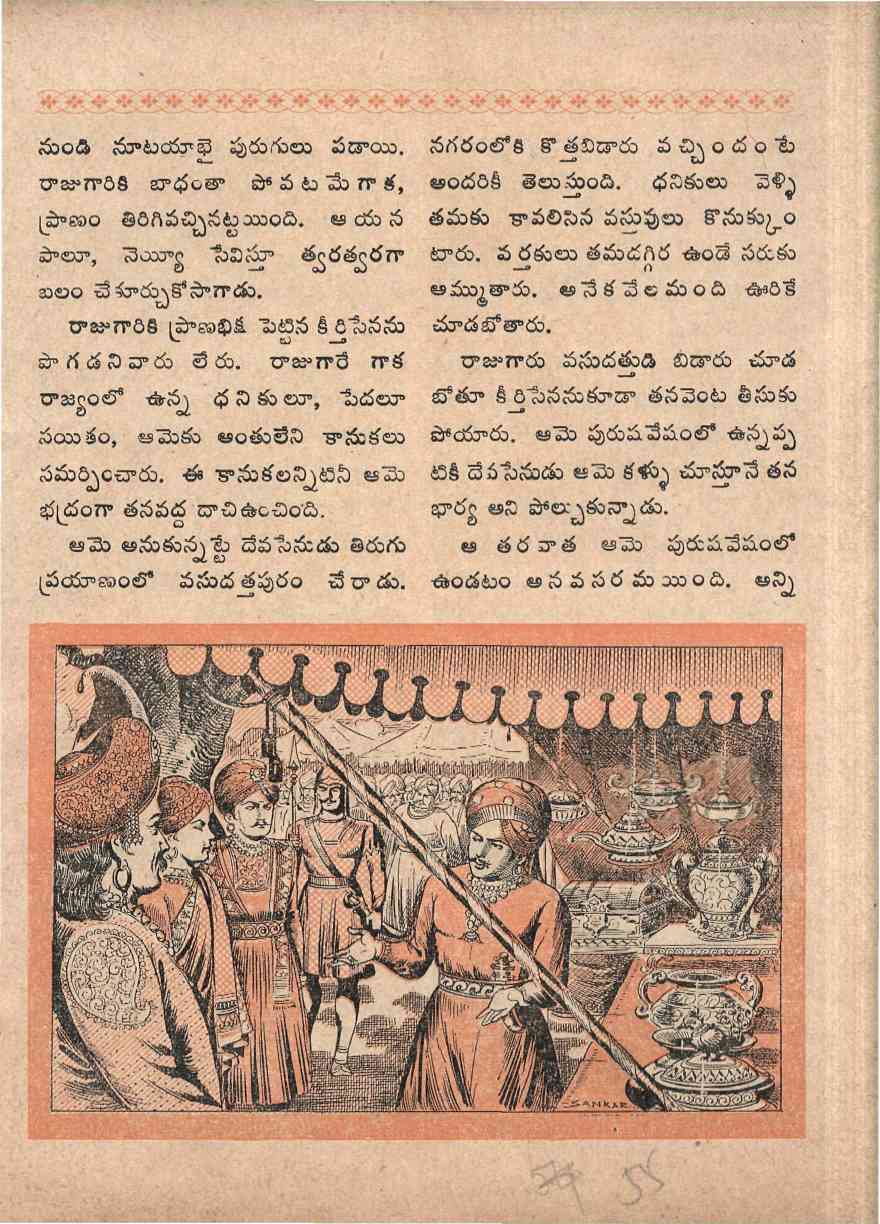 నుండి నూటయాభై పురుగులు పడాయి.
రాజుగారికి బాధంతా పోవటమేగాక,
ప్రాణం తిరిగివచ్చినట్టయింది. ఆయన
పాలూ, నెయ్యీ సేవిస్తూ త్వరత్వరగా
బలం చేకూర్చుకోసాగాడు.
రాజుగారికి ప్రాణభిక్ష పెట్టిన కీర్తిసేనను
పొగడనివారు లేరు. రాజుగారే గాక
రాజ్యంలో ఉన్న ధనికులూ, పేదలూ
సయితం, ఆమెకు అంతులేని కానుకలు
సమర్పించారు. ఈ కానుకలన్నిటినీ ఆమె
భద్రంగా తనవద్ద దాచిఉంచింది.
ఆమె అనుకున్నట్టే దేవసేనుడు తిరుగు
ప్రయాణంలో వసుదత్తపురం చేరాడు.
నగరంలోకి కొత్తబిడారు వచ్చిందంటే
అందరికీ తెలుస్తుంది. ధనికులు వెళ్ళి
తమకు కావలిసిన వస్తువులు కొనుక్కుం
టారు. వర్తకులు తమదగ్గిర ఉండే సరుకు
అమ్ముతారు. అనేకవేలమంది ఊరికే
చూడబోతారు.
రాజుగారు వసుదత్తుడి బిడారు చూడ
బోతూ కీర్తిసేననుకూడా తనవెంట తీసుకు
పోయారు. ఆమె పురుషవేషంలో ఉన్నప్ప
టికీ దేవసేనుడు ఆమె కళ్ళు చూస్తూనే తన
భార్య అని పోల్చుకున్నాడు.
ఆ తరవాత ఆమె పురుషవేషంలో
ఉండటం అనవసరమయింది. అన్ని
SANKAR
55